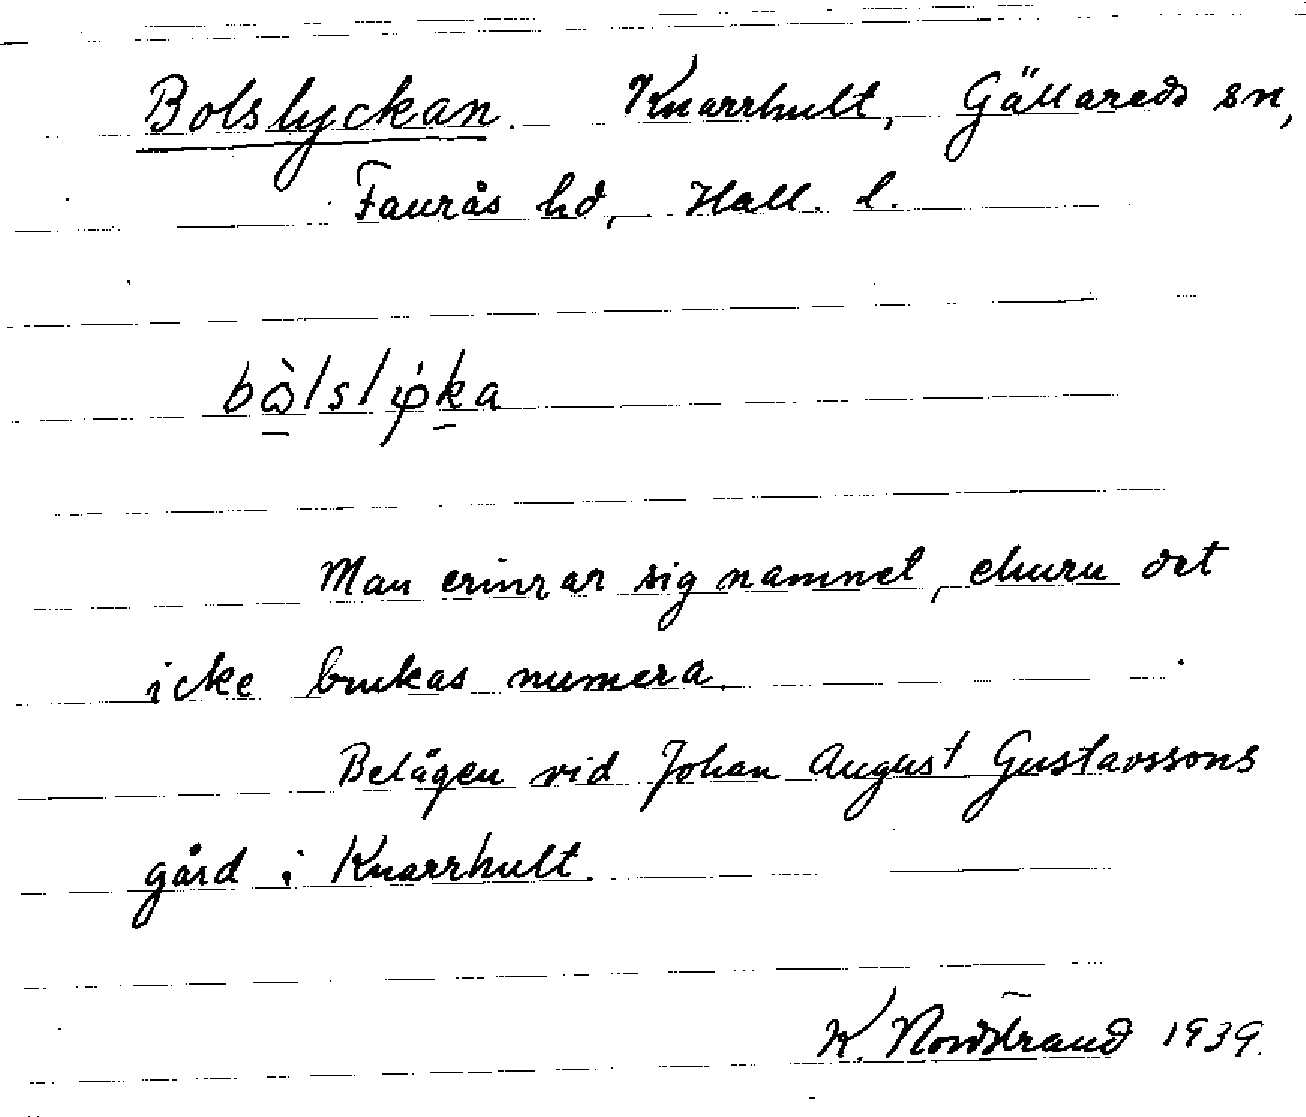 Bolslyckan. Knarrhult, Gällareds sn,
Faurås hd, Hall. l.
bὼlslφ́ka
Man erinrar sig namnet, ehuru det
icke brukas numera.
Belägen vid Johan August Gustavssons
gård i Knarrhult.
K. Nordstrand 1939.